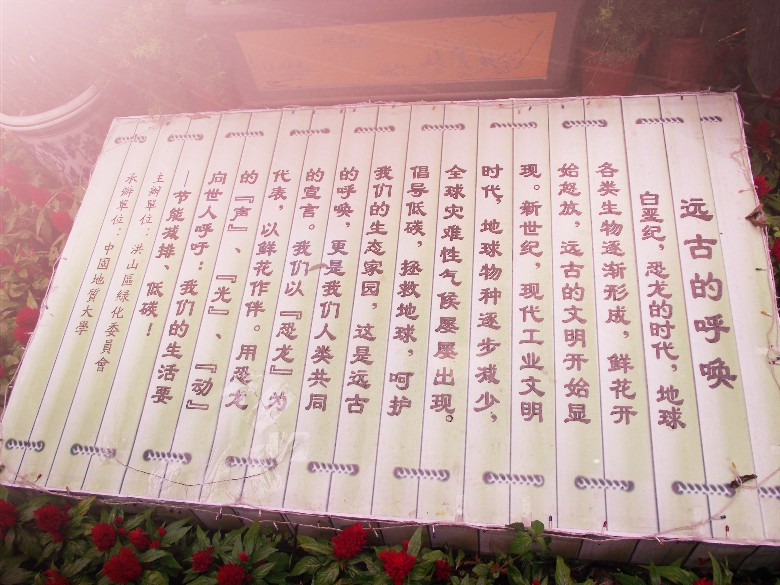 远古的呼唤
白垩纪，恐龙的时代，地球
各类生物逐渐形成，鲜花开
始怒放，远古的文明开始显
现。新世纪，现代工业文明
时代，地球物种逐步减少，
全球灾难性气候屡屡出现。
倡导低碳，拯救地球，呵护
我们的生态家园，这是远古
的呼唤，更是我们人类共同
的宣言。我们以『恐龙』为
代表，以鲜花作伴。用恐龙
的『声』、『光』、『动』
向世人呼吁：我们的生活要
—节能减排、低碳！
主辦單位：洪山區绿化委員會
承辦單位：中國地質大學